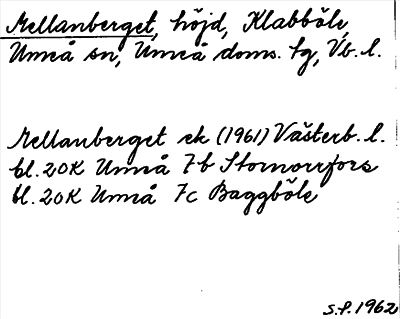 Mellanberget, höjd, Klabböle,
Umeå sn, Umeå doms. tg, Vb. l.
Mellanberget ek (1961) Västerb. l.
bl. 20K Umeå 7b Stornorrfors
bl. 20K Umeå 7c Baggböle
S.P. 1962